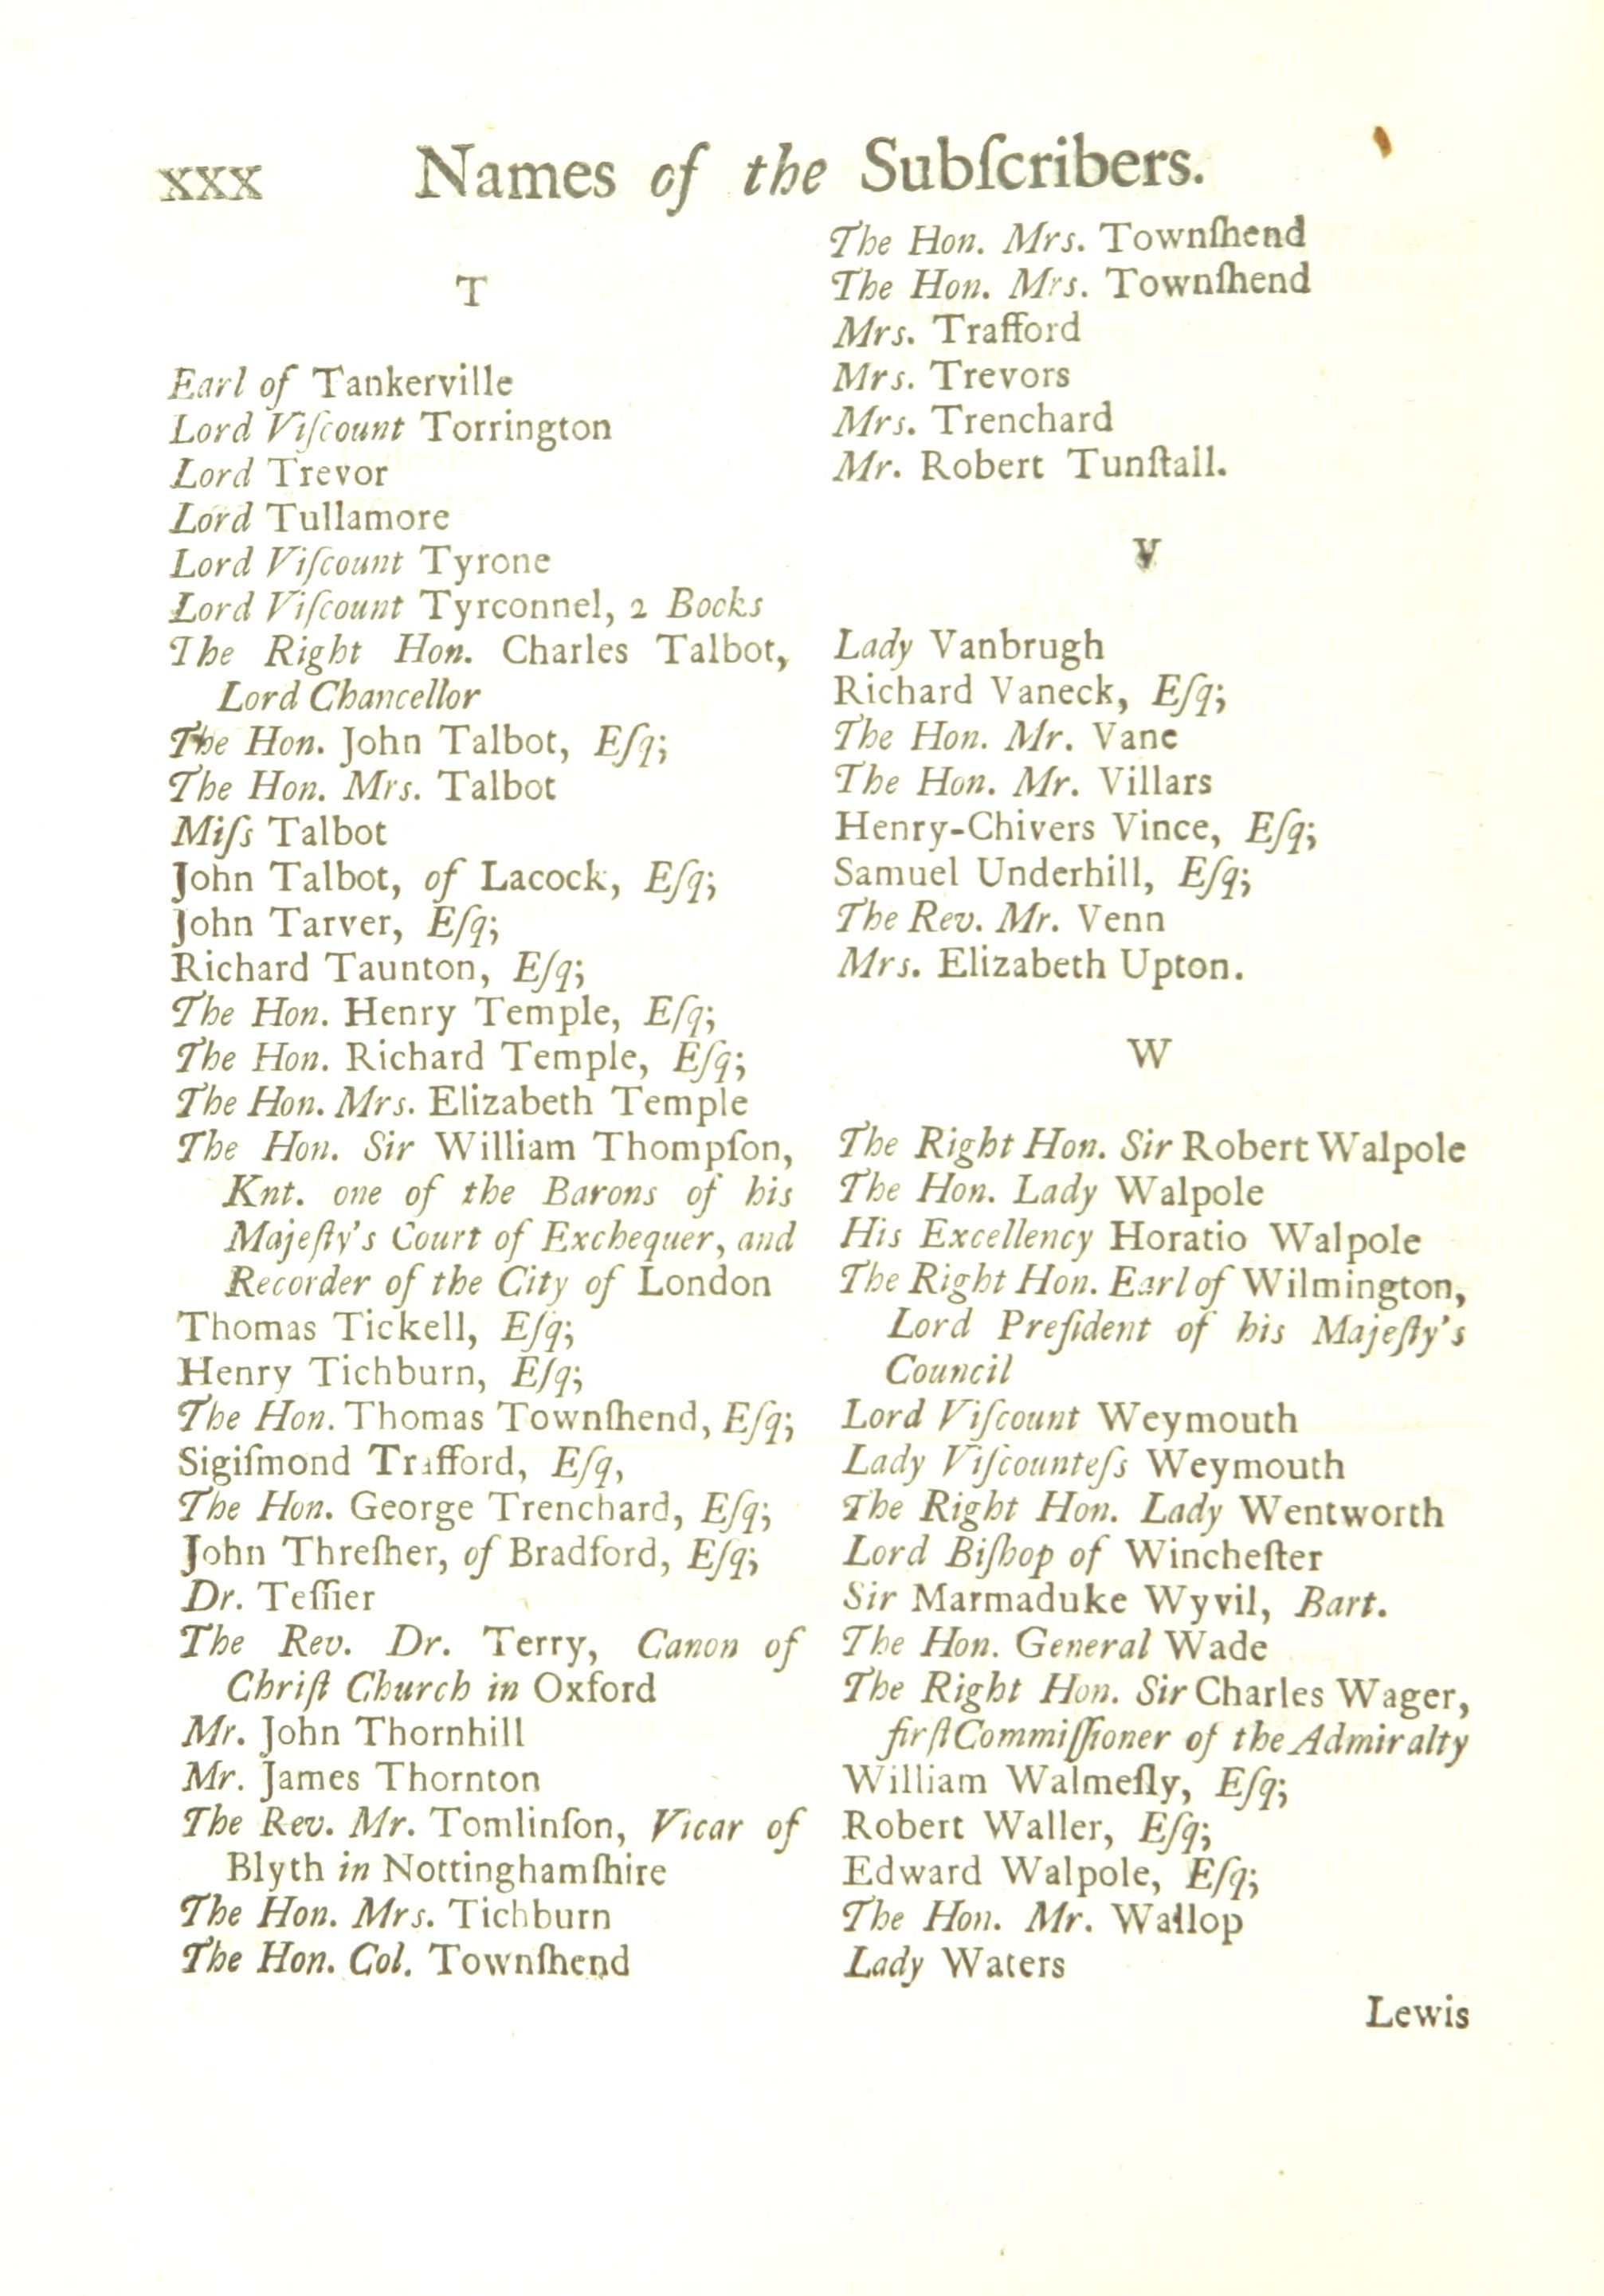 xxx Names of the Subſcribers.
T
Earl of Tankerville
Lord Viſcount Torrington
Lord Trevor
Lord Tullamore
Lord Viſcount Tyrone
Lord Viſcount Tyrconnel, 2 Books
The Right Hon. Charles Talbot,
Lord Chancellor
The Hon. John Talbot, Eſq;
The Hon. Mrs. Talbot
Miſs Talbot
John Talbot, of Lacock, Eſq;
John Tarver, Eſq;
Richard Taunton, Eſq;
The Hon. Henry Temple, Eſq;
The Hon. Richard Temple, Eſq;
The Hon. Mrs. Elizabeth Temple
The Hon. Sir William Thompſon,
Knt. one of the Barons of his
Majeſty's Court of Exchequer, and
Recorder of the City of London
Thomas Tickell, Eſq;
Henry Tichburn, Eſq;
The Hon. Thomas Townſhend, Eſq;
Sigiſmond Trafford, Eſq,
The Hon. George Trenchard, Eſq;
John Threſher, of Bradford, Eſq;
Dr. Teſſier
The Rev. Dr. Terry, Canon of
Chriſt Church in Oxford
Mr. John Thornhill
Mr. James Thornton
The Rev. Mr. Tomlinſon, Vicar of
Blyth in Nottinghamſhire
The Hon. Mrs. Tichburn
The Hon. Col. Townſhend
The Hon. Mrs. Townſhend
The Hon. Mrs. Townſhend
Mrs. Trafford
Mrs. Trevors
Mrs. Trenchard
Mr. Robert Tunſtall.
V
Lady Vanbrugh
Richard Vaneck, Eſq;
The Hon. Mr. Vane
The Hon. Mr. Villars
Henry-Chivers Vince, Eſq;
Samuel Underhill, Eſq;
The Rev. Mr. Venn
Mrs. Elizabeth Upton.
W
The Right Hon. Sir Robert Walpole
The Hon. Lady Walpole
His Excellency Horatio Walpole
The Right Hon. Earl of Wilmington,
Lord Preſident of his Majeſty's
Council
Lord Viſcount Weymouth
Lady Viſcounteſs Weymouth
The Right Hon. Lady Wentworth
Lord Biſhop of Wincheſter
Sir Marmaduke Wyvil, Bart.
The Hon. General Wade
The Right Hon. Sir Charles Wager,
firſt Commiſſioner of the Admiralty
William Walmeſly, Eſq;
Robert Waller, Eſq;
Edward Walpole, Eſq;
The Hon. Mr. Wallop
Lady Waters
Lewis